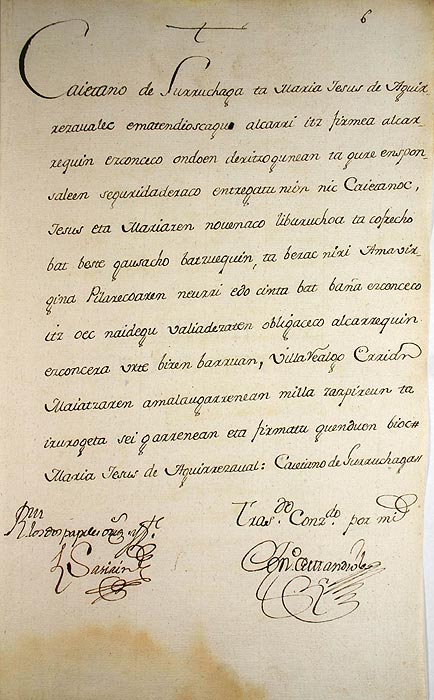 6
Caietano de Surruchaga ta Maria Jesus de Aguir-
rezavalec ematendioscague alcarri itz firmea alcar-
requin ezconceco ondoen deritzogunean ta gure enspon-
saleen seguridaderaco entregatu nion nic Caietanoc,
Jesus eta Mariaren novenaco liburuchoa ta cofrecho
bat beste gausacho batzuequin, ta berac niri Amavir-
gina Pilarecoaren neurri edo cinta bat baña ezconceco
itz oec naidegu valiadezaten obligaceco alcarrequin
ezconcera urte biren barruan, Villa Realgo Errian
Maiatzaren amalaugarrenean milla zazpireun ta
irurogeta sei garrenean eta firmatu guenduen bioc
Maria Jesus de Aguirrezaval: Caietano de Surruchaga
Tras.do Conz.do por mi